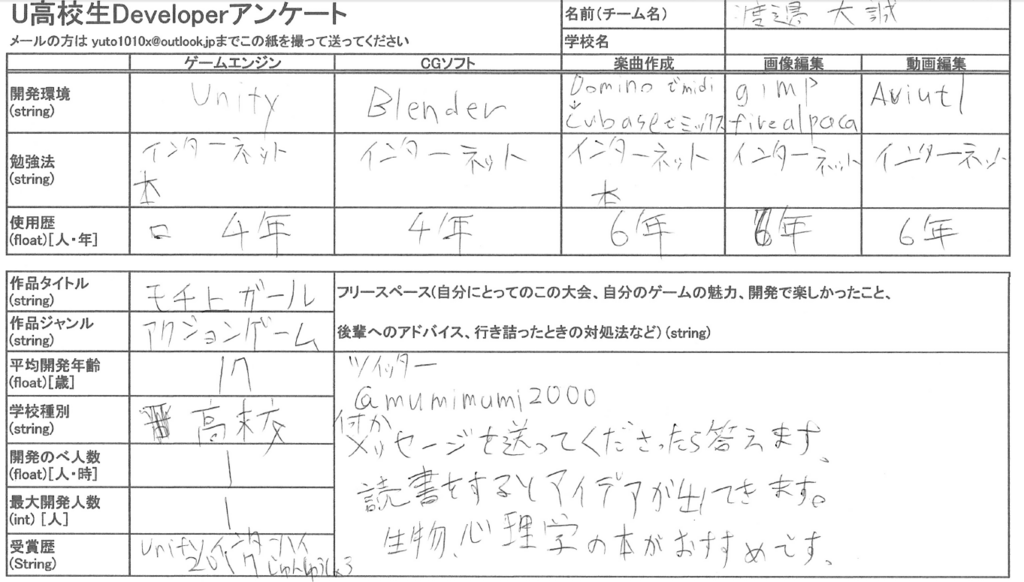 U高校生Developerアンケート
名前(チーム名) 渡邉 大誠
メールの方は yuto1010x@outlook.jpまでこの紙を撮って送ってください
学校名
ゲームエンジン CGソフト 楽曲作成 画像編集 動画編集
開発環境
(string)
Unity
Blender
Dominoでmidi
↓
Cubaseでミックス
gimp
firealpaca
Aviutl
勉強法
(string)
インターネット
本
インターネット
インターネット
本
インターネット
インターネット
使用歴
(float)[人・年]
4年 4年 6年 6年 6年
作品タイトル
(string)
モチ上ガール
作品ジャンル
(string)
アクションゲーム
平均開発年齢
(float)[歳]
17
学校種別
(string)
高校
開発のべ人数
(float)[人・時]
1
最大開発人数
(int) [人]
1
受賞歴
(String)
Unityインターハイ
2017 じゅんゆうしょう
フリースペース(自分にとってのこの大会、自分のゲームの魅力、開発で楽しかったこと、
後輩へのアドバイス、行き詰ったときの対処法など) (string)
ツイッター
@mumimumi2000
何か
メッセージを送ってくださったら答えます。
読書をするとアイデアが出てきます。
生物、心理学の本がおすすめです。